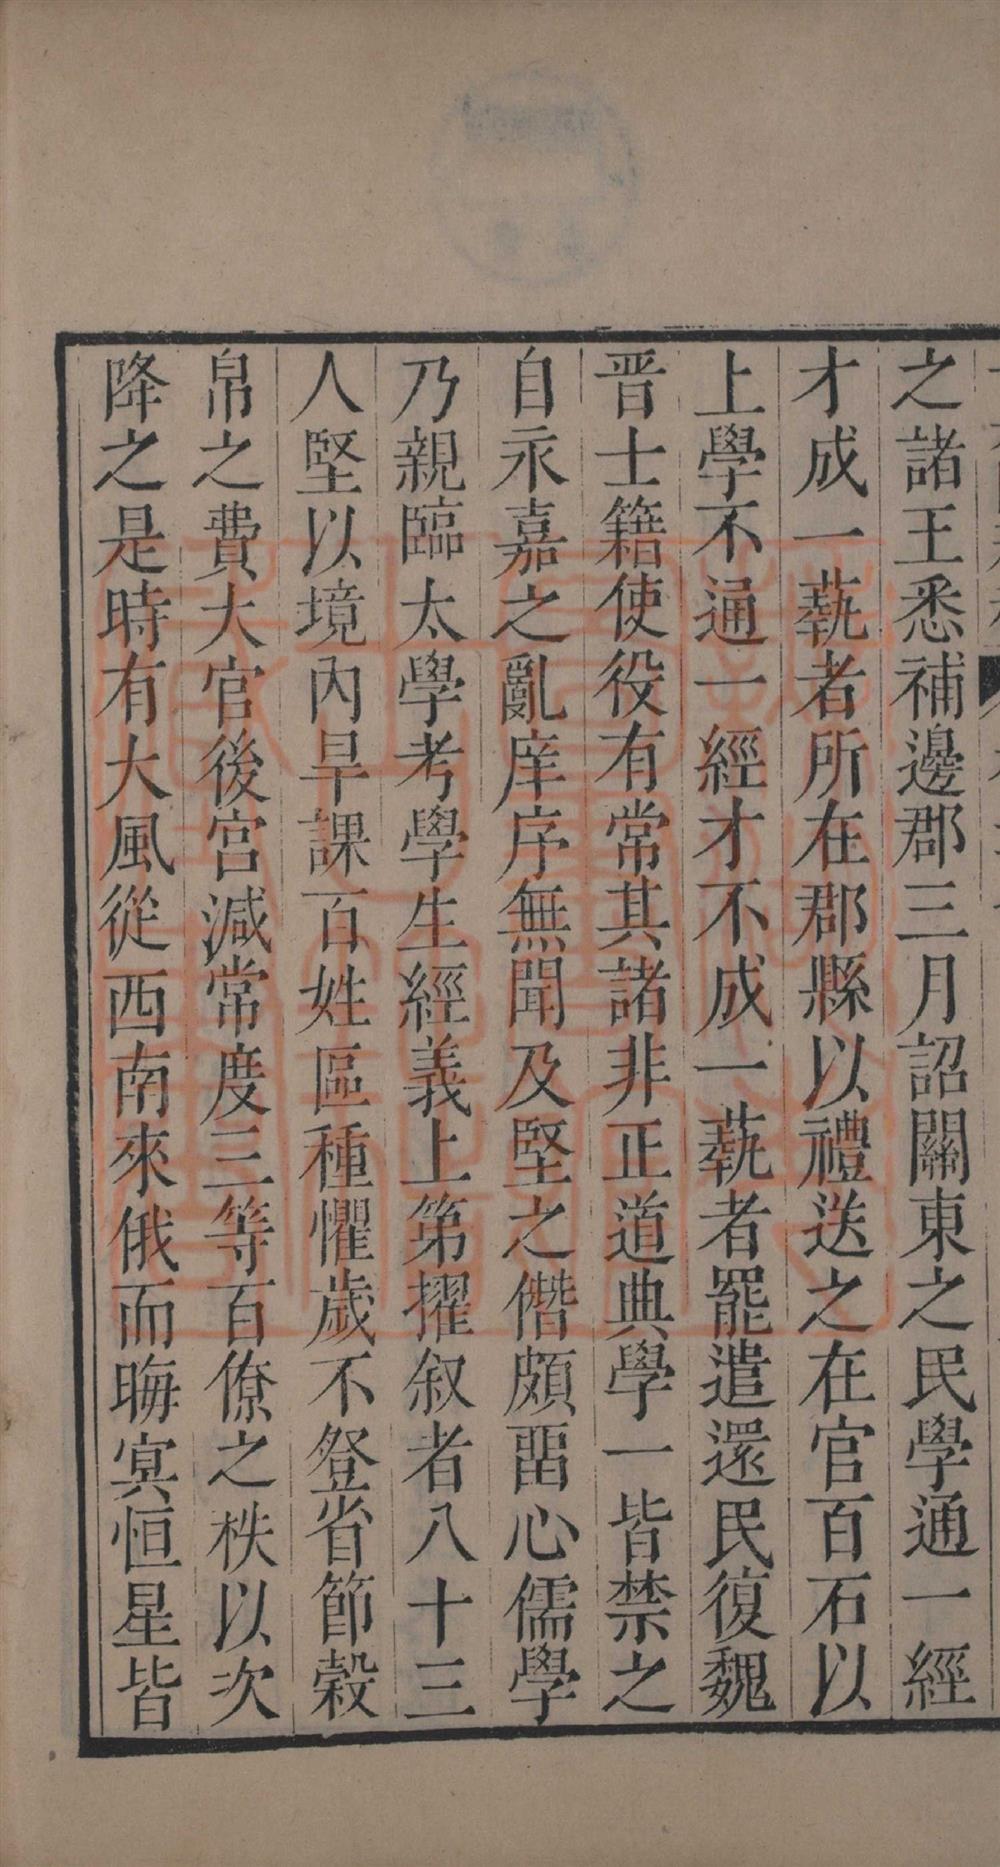 之諸王悉補邊郡三月詔關東之民學通一經
才成一蓺者所在郡縣以禮送之在官百石以
上學不通一經才不成一蓺者罷遣還民復魏
晋士籍使役有常其諸非正道典學一皆禁之
自永嘉之亂庠序無聞及堅之僭頗畱心儒學
乃親臨太學考學生經義上第擢叙者八十三
人堅以境內旱課百姓區種懼歲不登省節穀
帛之費大官後宮減常度三等百僚之秩以次
降之是時有大風從西南來俄而晦冥恒星皆